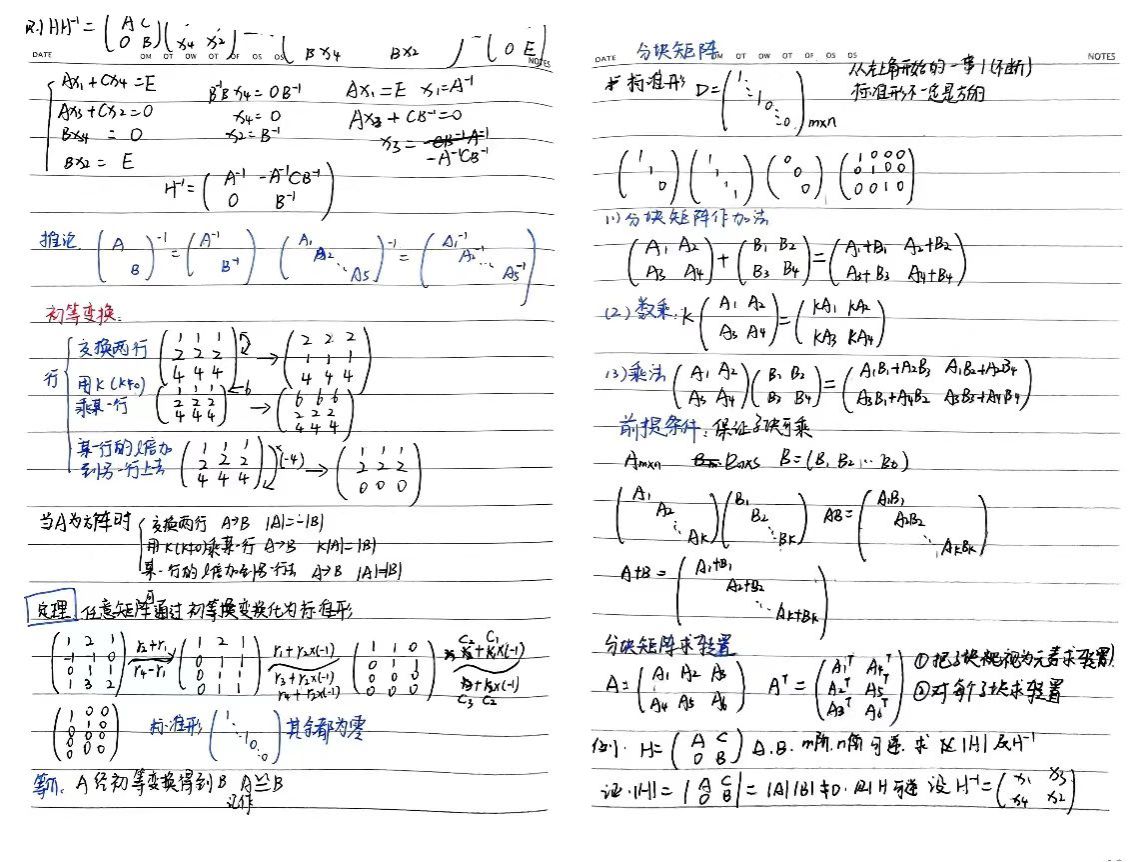 HH⁻¹ = (A C; 0 B)( ; x4 x2) = ( ; Bx4 Bx2) = ( ; 0 E)
DATE OM OT OW OT OF OS OS NOTES
Ax1 + Cx4 = E
Ax3 + Cx2 = 0
Bx4 = 0
Bx2 = E
B⁻¹Bx4 = 0B⁻¹
x4 = 0
x2 = B⁻¹
Ax1 = E x1 = A⁻¹
Ax3 + CB⁻¹ = 0
x3 = -A⁻¹CB⁻¹
H⁻¹ = (A⁻¹ -A⁻¹CB⁻¹; 0 B⁻¹)
推论 (A B)⁻¹ = (A⁻¹ B⁻¹) (A1 A2 ⋱ As)⁻¹ = (A1⁻¹ A2⁻¹ ⋱ As⁻¹)
初等变换:
行
交换两行 (1 1 1; 2 2 2; 4 4 4) → (2 2 2; 1 1 1; 4 4 4)
用K(K≠0)
乘某一行 (1 1 1; 2 2 2; 4 4 4) ←6 → (6 6 6; 2 2 2; 4 4 4)
某一行的l倍加
到另一行上去 (1 1 1; 2 2 2; 4 4 4) (-4) → (1 1 1; 2 2 2; 0 0 0)
当A为方阵时
交换两行 A→B |A|=-|B|
用K(K≠0)乘某一行 A→B K|A|=|B|
某一行的l倍加到另一行去 A→B |A|=|B|
定理: 任意矩阵可通过初等换变换化为标准形
(1 2 1; -1 -1 0; 0 1 1; 1 3 2) r2+r1 r4-r1 (1 2 1; 0 1 1; 0 1 1; 0 1 1) r1+r2×(-1) r3+r2×(-1) r4+r2×(-1) (1 1 0; 0 1 1; 0 0 0; 0 0 0) C2 C1 ×(-1) C3 C2 ×(-1)
(1 0 0; 0 1 0; 0 0 0; 0 0 0) 标准形 (1 ⋱ 1 0 0) 其余都为零
等价: A经初等变换得到B A≅B
记作
分块矩阵
DATE OM OT OW OT OF OS OS NOTES
* 标准形 D = (1 ⋱ 1 0 ⋱ 0)m×n
从左上角开始的一串1(不断)
标准形不一定是方的
(1 1 0) (1 1 ⋱ 1) (0 0 0) (1 0 0 0; 0 1 0 0; 0 0 1 0)
(1)分块矩阵作加法
(A1 A2; A3 A4) + (B1 B2; B3 B4) = (A1+B1 A2+B2; A3+B3 A4+B4)
(2)数乘: K(A1 A2; A3 A4) = (KA1 KA2; KA3 KA4)
(3)乘法 (A1 A2; A3 A4)(B1 B2; B3 B4) = (A1B1+A2B3 A1B2+A2B4; A3B1+A4B2 A3B3+A4B4)
前提条件: 保证子块可乘
Am×n Bn×s B=(B1 B2 … Bs)
(A1 A2 ⋱ Ak)(B1 B2 ⋱ Bk) AB = (A1B1 A2B2 ⋱ AkBk)
A+B = (A1+B1 A2+B2 ⋱ Ak+Bk)
分块矩阵求转置
A = (A1 A2 A3; A4 A5 A6) Aᵀ = (A1ᵀ A4ᵀ; A2ᵀ A5ᵀ; A3ᵀ A6ᵀ)
①把子块视为元素求转置
②对每个子块求转置
例1. H = (A C; 0 B) A.B. m阶.n阶可逆. 求 |H| 及H⁻¹
证: |H| = |A C; 0 B| = |A||B| ≠ 0. 则H可逆 设 H⁻¹ = (x1 x3; x4 x2)